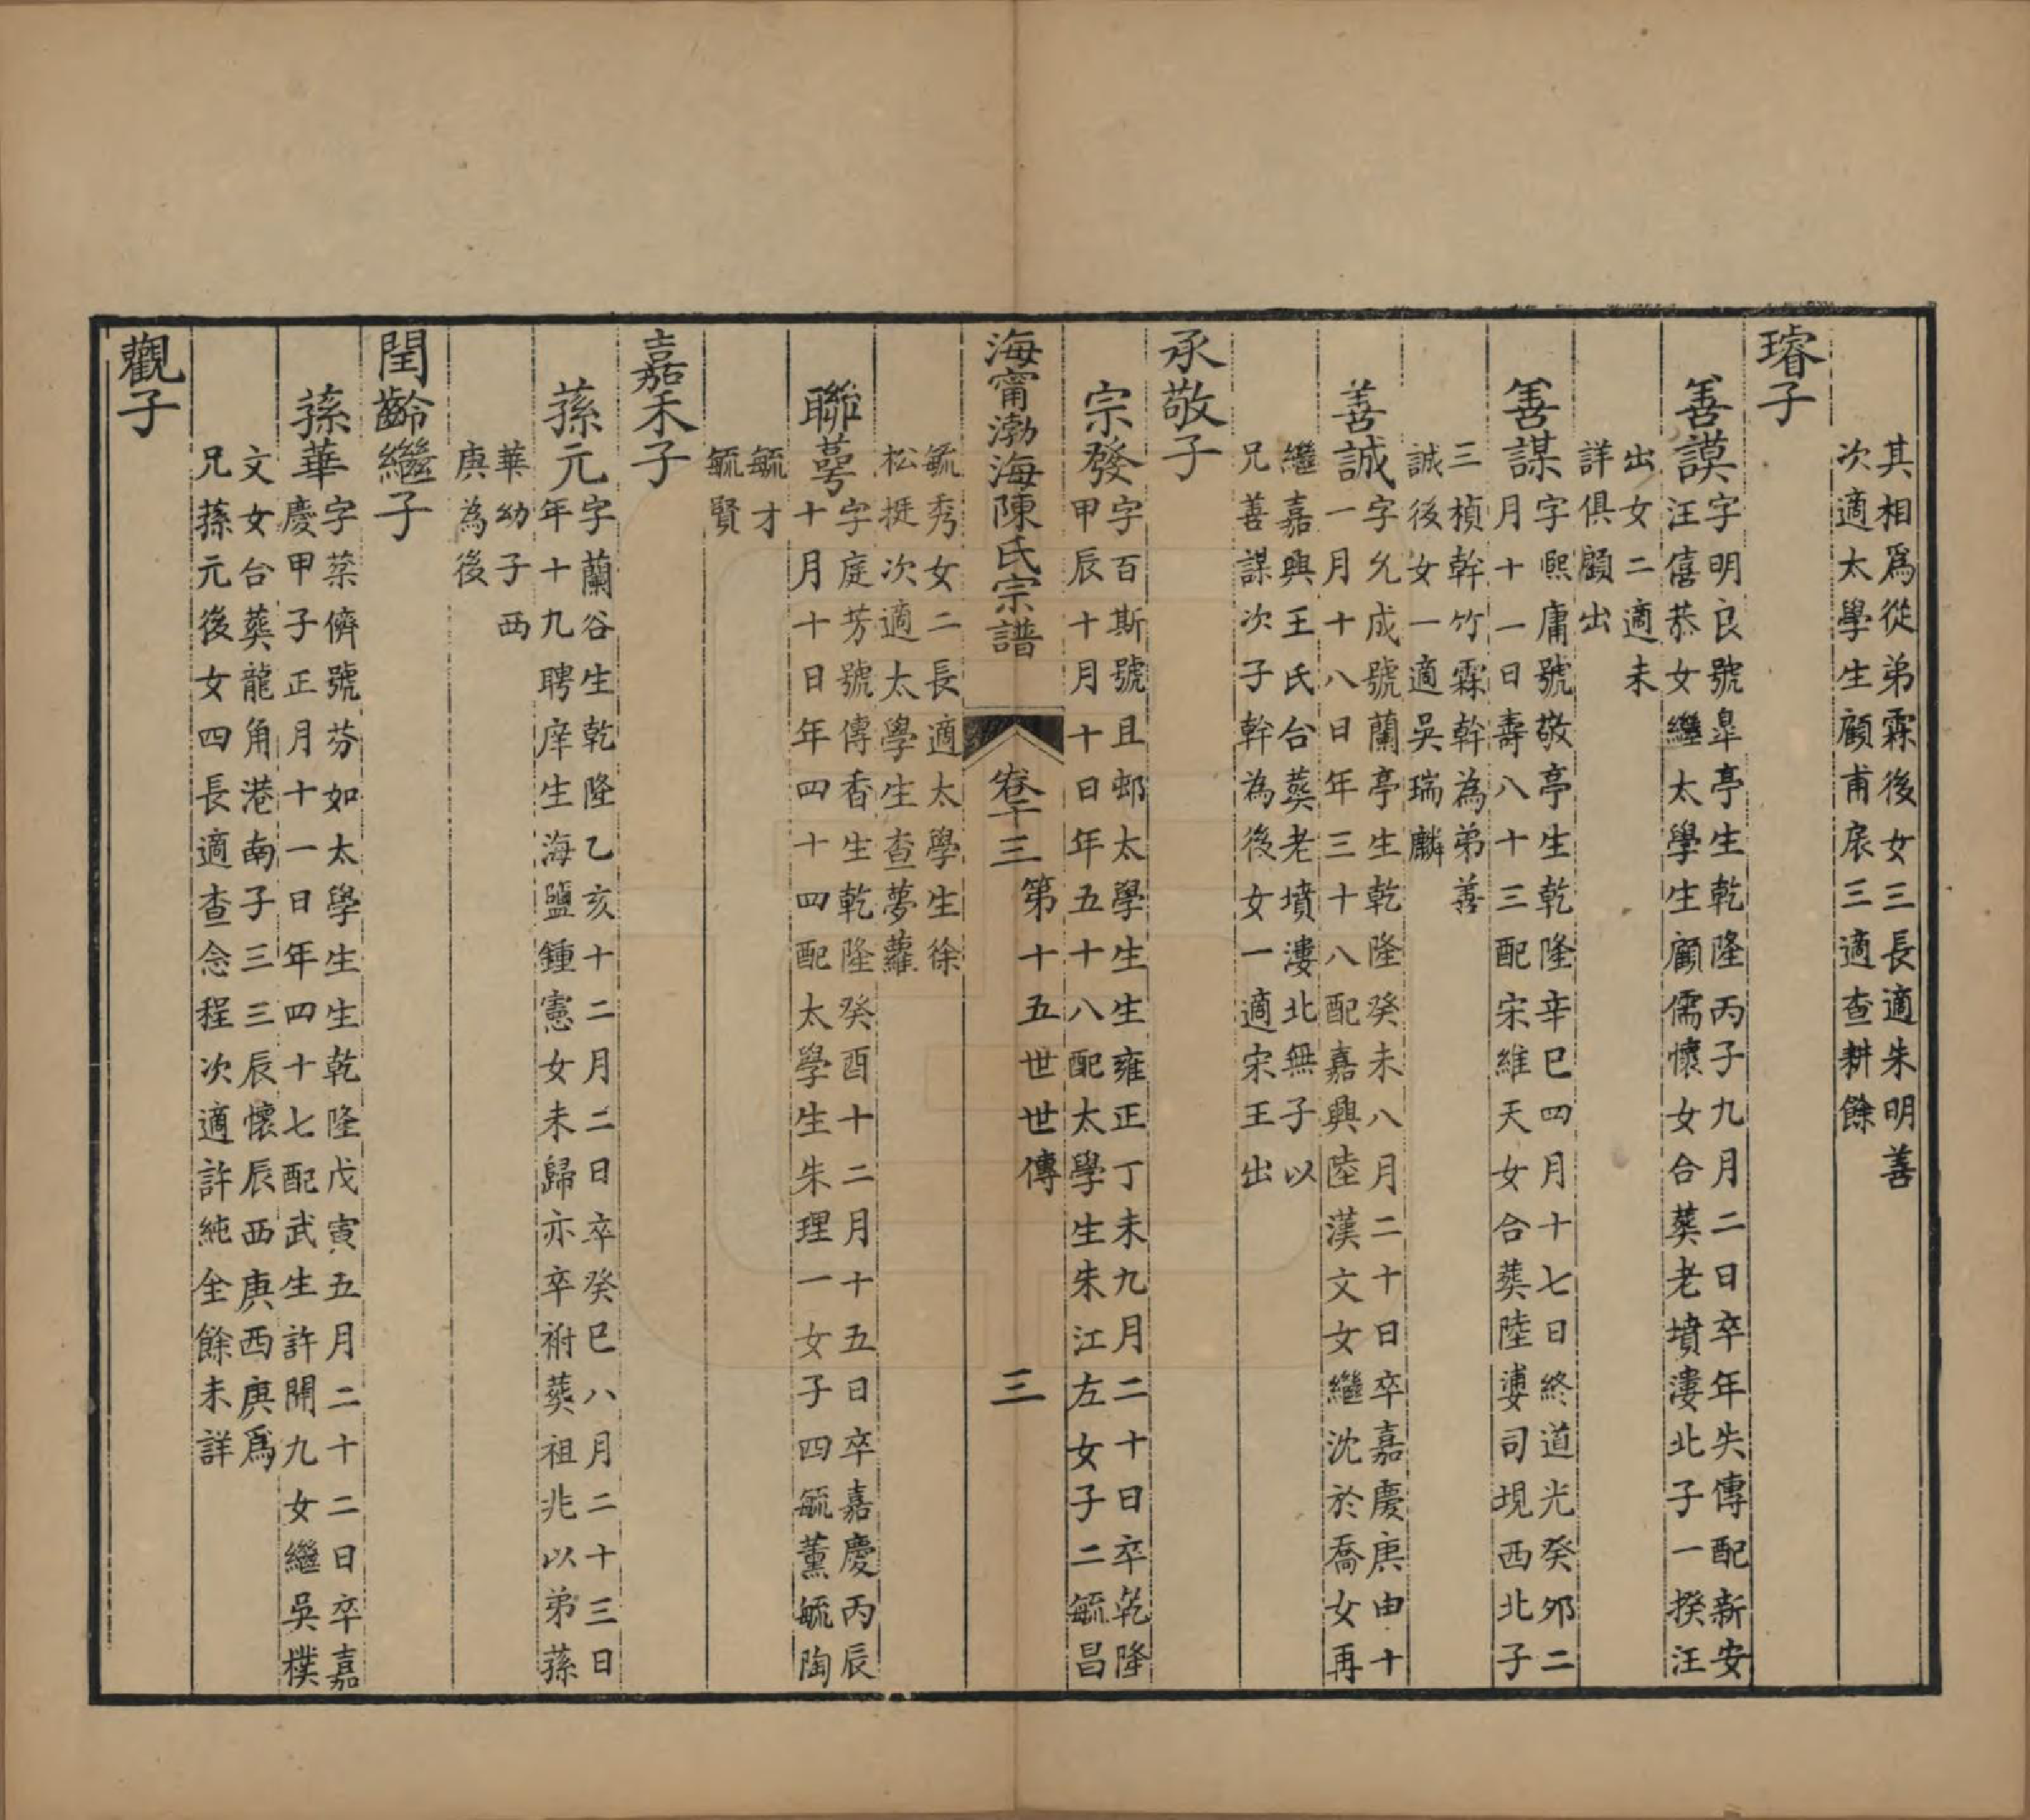 其相爲從弟霖後女三長適朱明善
次適太學生顧甫扆三適查耕餘
璿子
善謨
字明良號臯亭生乾隆丙子九月二日卒年失傳配新安
汪僖恭女繼太學生顧儒懷女合葬老墳漊北子一揆汪
出女二適未
詳俱顧出
善謀
字熙庸號敬亭生乾隆辛巳四月十七日終道光癸夘二
月十一日壽八十三配宋維天女合葬陸婁司垷西北子
三楨幹竹霖幹為弟善
誠後女一適吳瑞麟
善誠
字允成號蘭亭生乾隆癸未八月二十日卒嘉慶庚申十
一月十八日年三十八配嘉興陸漢文女繼沈於喬女再
繼嘉興王氏合葬老墳漊北無子以
兄善謀次子幹為後女一適宋王出
承敬子
宗發
字百斯號且邨太學生生雍正丁未九月二十日卒乾隆
甲辰十月十日年五十八配太學生朱江左女子二毓昌
海甯渤海陳氏宗譜 卷十三 第十五世世傳 三
毓秀女二長適太學生徐
松挺次適太學生查夢蘿
聯萼
字庭芳號傳香生乾隆癸酉十二月十五日卒嘉慶丙辰
十月十日年四十四配太學生朱理一女子四毓薰毓陶
毓才
毓賢
嘉禾子
蓀元
字蘭谷生乾隆乙亥十二月二日卒癸巳八月二十三日
年十九聘庠生海鹽鍾憲女未歸亦卒祔葬祖兆以弟蓀
華幼子西
庚為後
閏齡繼子
蓀華
字棻儕號芬如太學生生乾隆戊寅五月二十二日卒嘉
慶甲子正月十一日年四十七配武生許開九女繼吳樸
文女合葬龍角港南子三三辰懷辰西庚西庚爲
兄蓀元後女四長適查念程次適許純全餘未詳
觀子